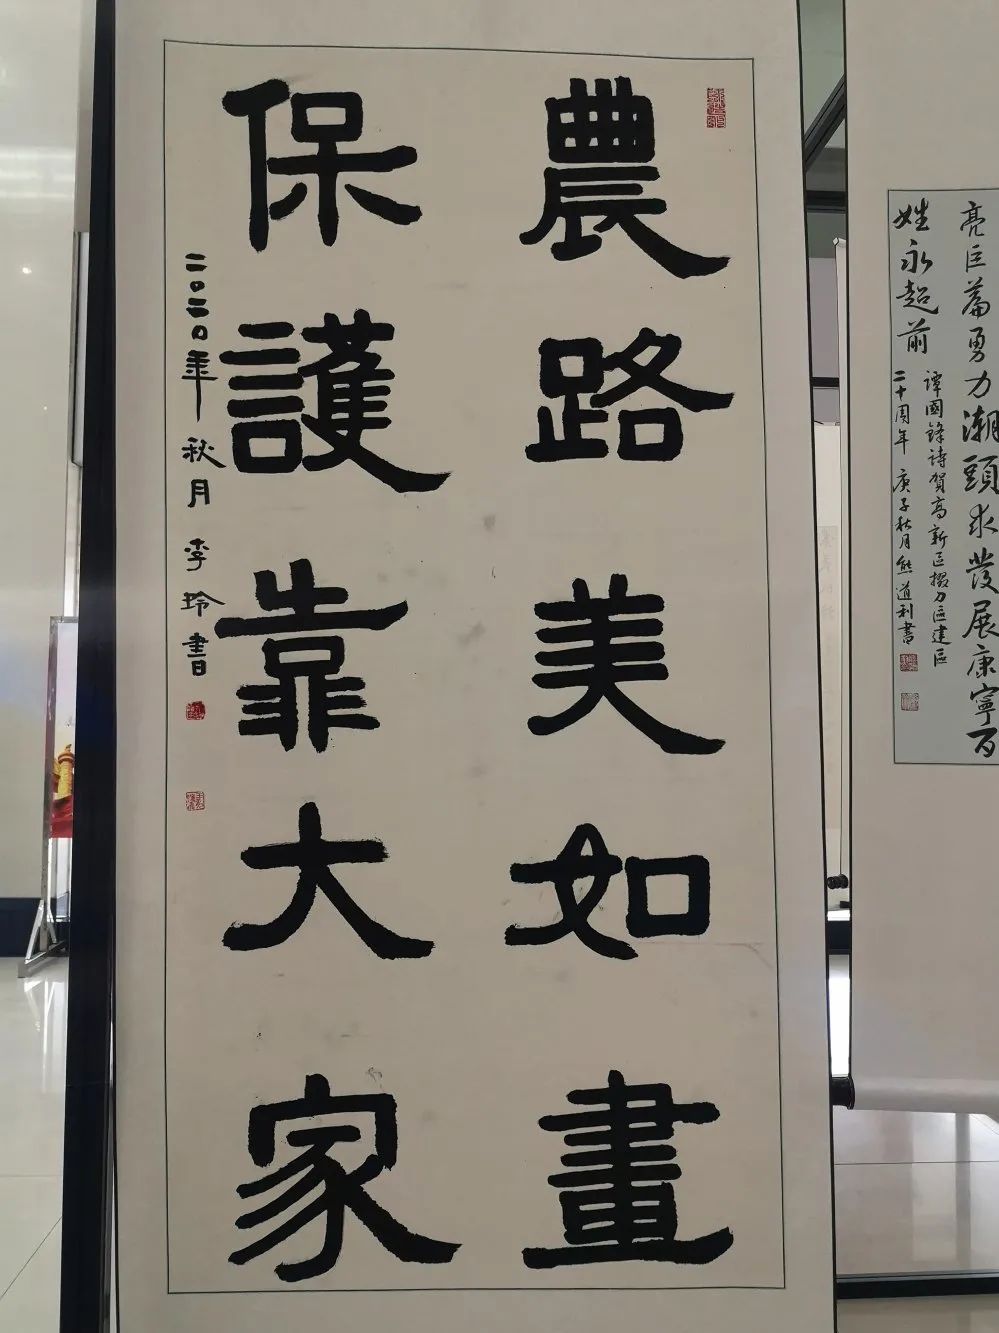 農路美如畫
保護靠大家
二〇二〇年秋月李玲書
亮巨篇勇力潮頭求發展康寧百
姓永超前
譚國鋒詩賀高新區掇刀區建區
二十周年庚子秋月熊道利書